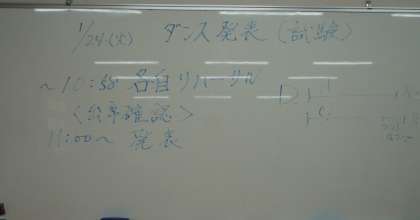 1/24(火) ダンス発表(試験)
~10:50 各自リハーサル
確認>
11:00~ 発表